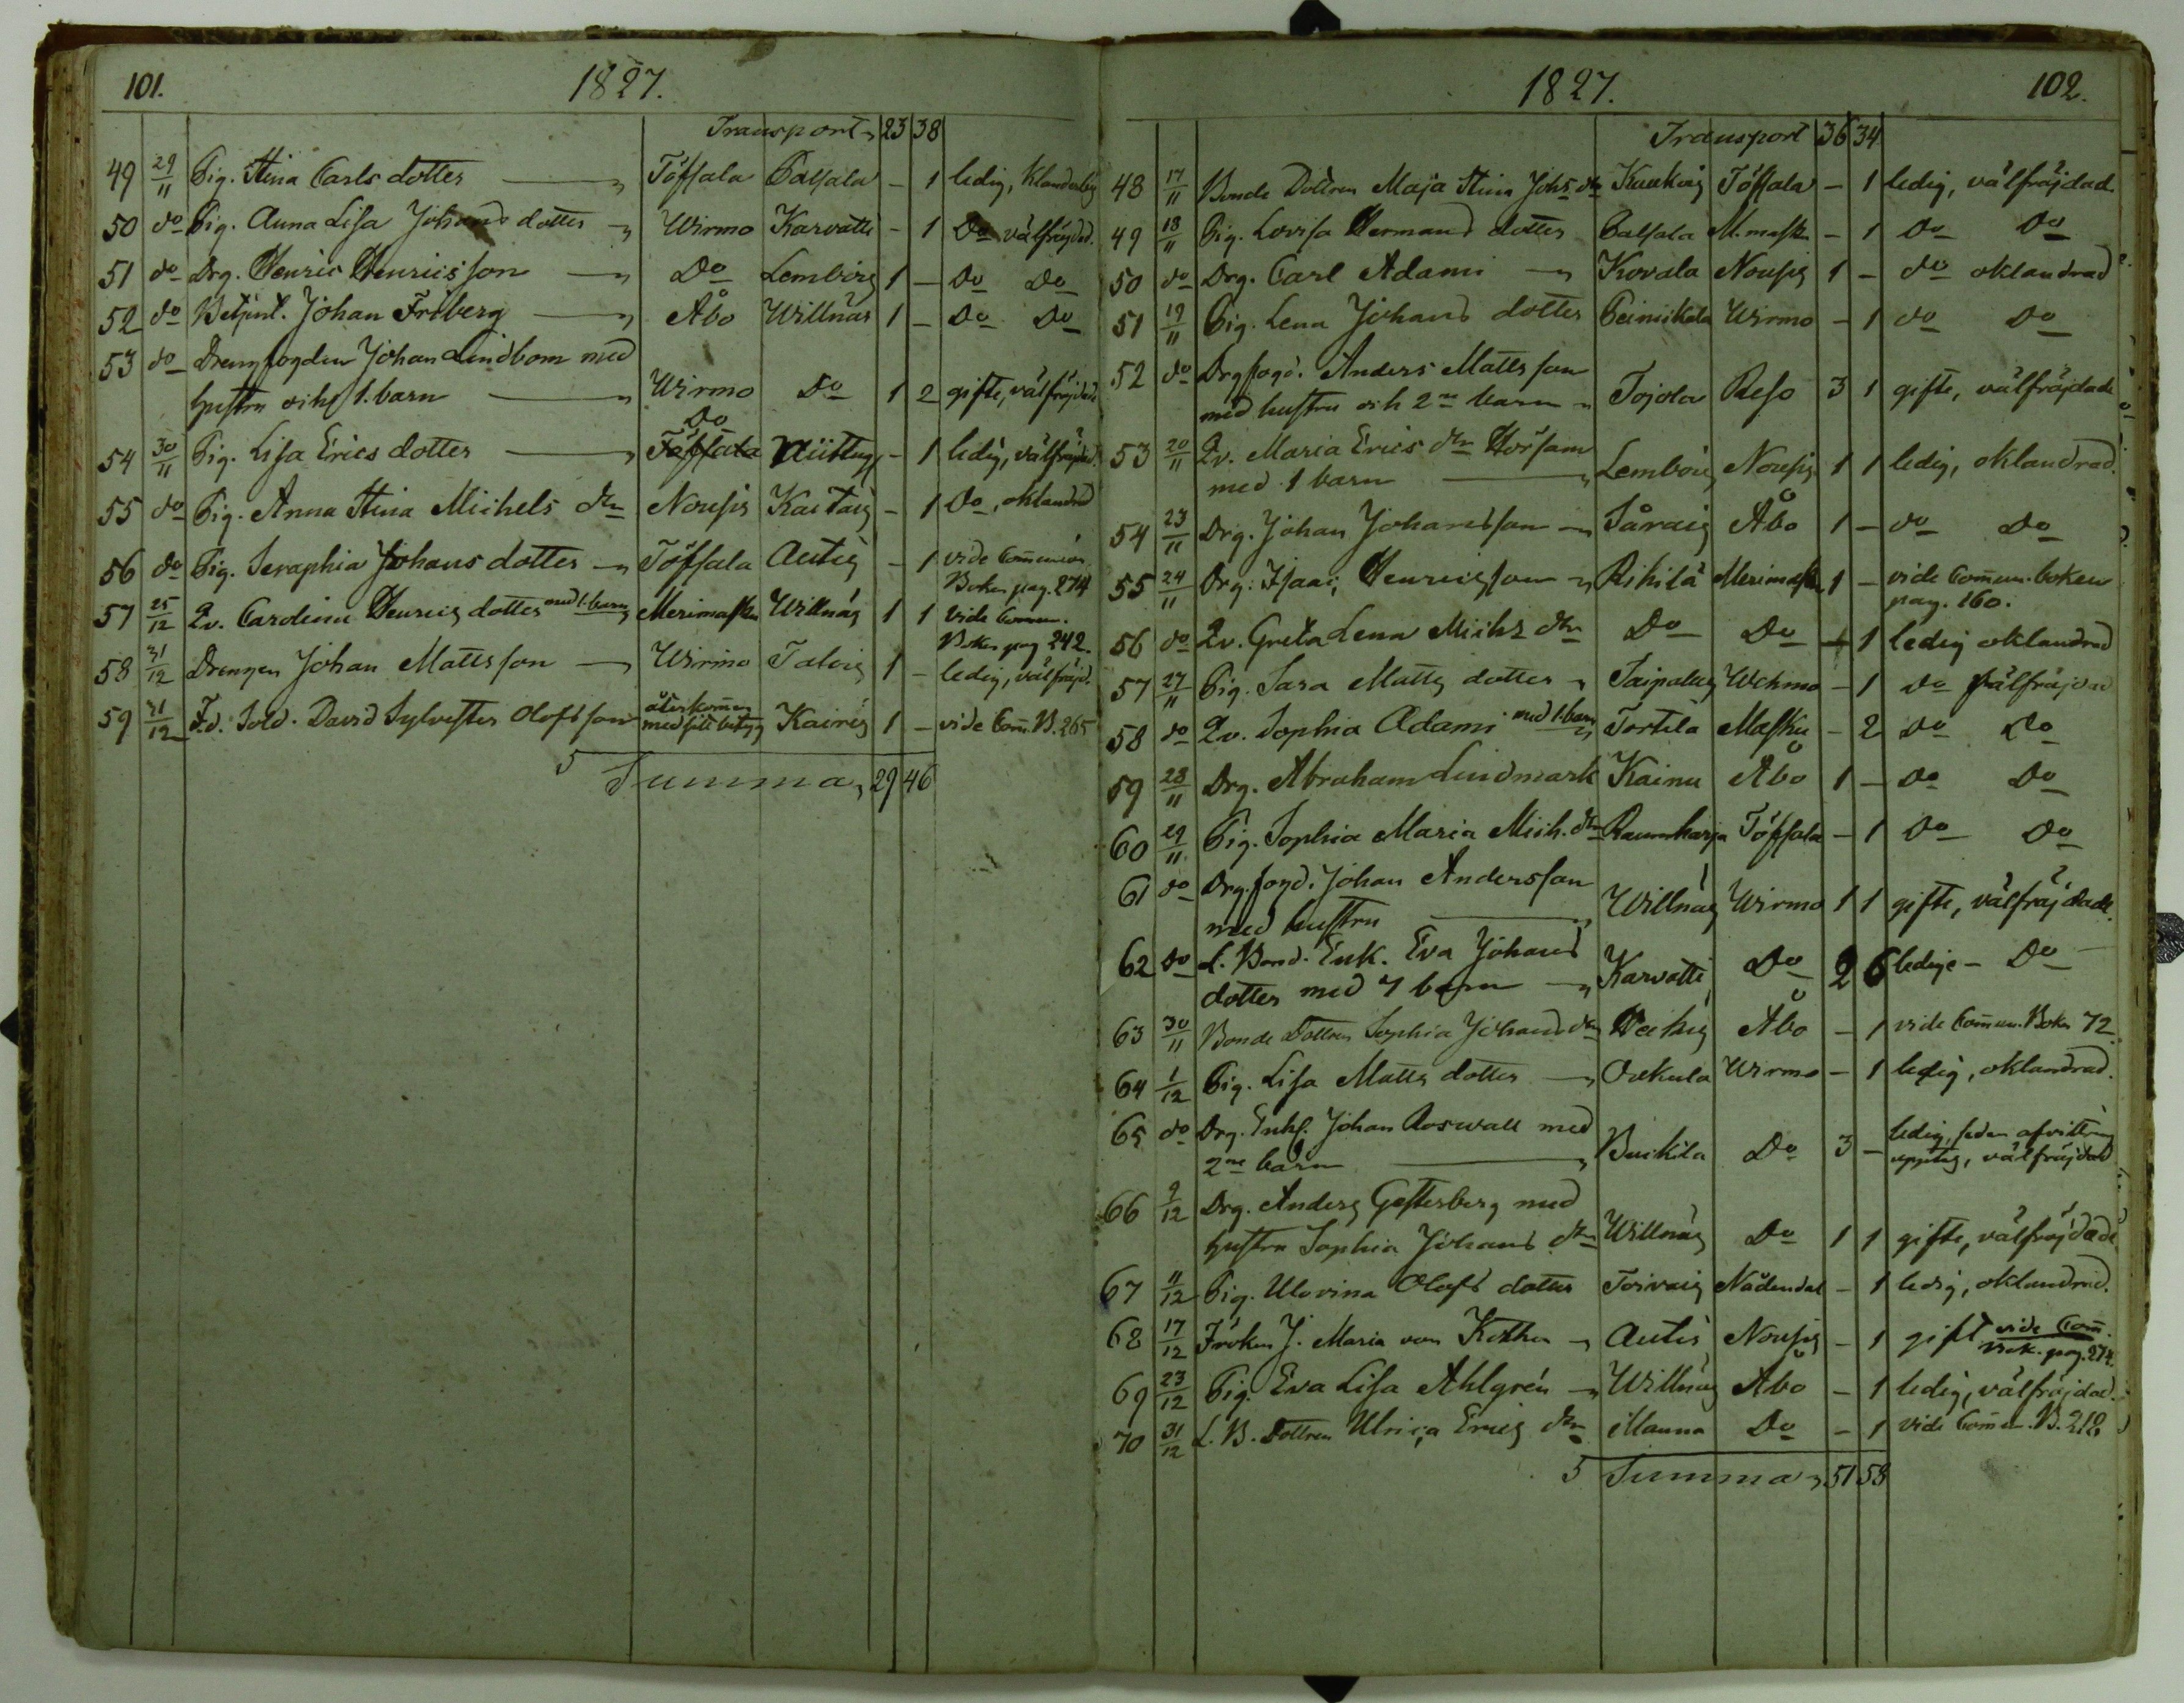 101.
1827.
Transport 23 38
49 29/11 Pig. Stina Carls dotter Töfsala Palsala - 1 ledig, Klanderlig
50 do Pig. Anna Lisa Johans dotter Wirmo Karvatti - 1 Do välfräjdad.
51 do Drg. Henric Henricsson Do Lemböig 1 - Do Do
52 do Betjent. Johan Friberg Åbo Willnäs 1 - Do Do
53 do Drengfogden Johan Lindbom med
hustru och 1. barn Wirmo Do 1 2 gifte, välfräjdade
Do
54 30/11 Pig. Lisa Erics dotter Töfsala - 1 ledig, välfräjdad.
55 do Pig. Anna Stina Michels dtr Nousis Kaitaig - 1 Do, oklandrad
56 do Pig. Seraphia Johans dotter Töfsala Autig - 1 vide Communion
Boken pag. 274
57 25/12 Qv. Carolina Henrics dotter med 1. barn Merimasku Willnäs 1 1 vide Commun.
Boken pag 242.
58 31/12 Drengen Johan Mattsson Wirmo Taloig 1 - ledig, välfräjd.
återkommen
59 31/12 F.d. Sold. David Sylvester Olofsson med sitt betyg Kairis 1 - vide Com. B. 265
Summa 29 46
1827.
102.
Transport 36 34
48 17/11 Bonde Dottren Maja Stina Johs dtr Kaukois Töfsala - 1 ledig, välfräjdad.
49 18/11 Pig. Lovisa Hermans dotter Palsala M.mask - 1 Do Do
50 do Drg. Carl Adami Kovala Nousis 1 - do oklandrad
51 19/11 Pig. Lena Johans dotter Peinikala Wirmo - 1 do Do
52 do Drgfogd. Anders Mattsson
med hustru och 2ne barn Tojola Reso 3 1 gifte, välfräjdade
53 20/11 Qv. Maria Erics dtr Hörsam
med 1 barn Lemböig Nousis 1 1 ledig, oklandrad.
54 23/11 Drg. Johan Johansson Såraig Åbo 1 - do Do
55 24/11 Drg. Isaac Henricsson Rikila Merimask 1 - vide Commun. boken
pag. 160.
56 do Qv. Greta Lena Michs dtr Do Do - 1 ledig oklandrad
57 27/11 Pig. Sara Matts dotter Taipalus Wehmo - 1 do välfräjdad
58 do Qv. Sophia Adami med 1. barn Tortila Masku - 2 Do Do
59 28/11 Drg. Abraham Lindmark Kainu Åbo 1 - Do Do
60 29/11 Pig. Sophia Maria Mich. dtr Raumharja Töfsala - 1 Do Do
61 do Drg.fogd. Johan Andersson
med hustru Willnäs Wirmo 1 1 gifte, välfräjdade.
62 Do L. Bond. Enk. Eva Johans
dotter med 7 barn Karvatti Do 2 6 ledige - Do
63 30/11 Bonde Dottren Sophia Johans dtr Åbo - 1 vide Commun. Boken 72
64 1/12 Pig. Lisa Matts dotter Ovkula Wirmo - 1 ledig, oklandrad.
65 do Drg. Enkl. Johan Roswall med
2ne barn Buikila Do 3 - ledig, sedan afvittring
upptag, välfräjdad
66 9/12 Drg. Anders Gesterberg med
hustru Sophia Johans dtr Willnäs Do 1 1 gifte, välfräjdade
67 11/12 Pig. Ulovina Olofs dotter Toivaig Nådendal - 1 ledig, oklandrad.
68 17/12 Fröken J. Maria von Kothen Autis Nousis - 1 gift vide Com.
Bok. pag. 274.
69 23/12 Pig. Eva Lisa Ahlgrén Willnäs Åbo - 1 ledig, välfräjdad.
70 31/12 L. B. Dottren Ulrica Erics dtr Manna Do - 1 vide Commun. B. 218
Summa 51 58